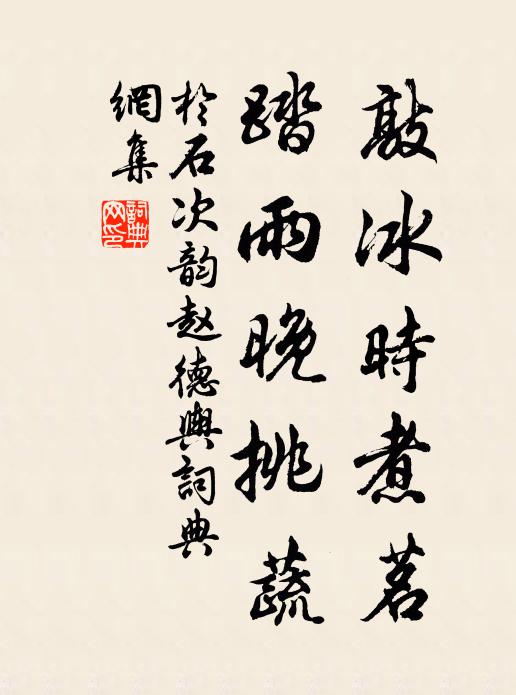 敲冰時煮茗
踏雨晚挑蔬
於石次韵赵德興詞典
網集
詞典
网印